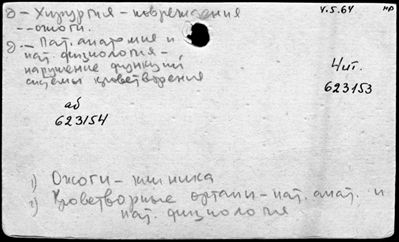 д – Хирургия – повреждения
-- ожоги.
д. – Пат. анатомия и
пат. физиология –
нарушение функций
системы кроветворения
V.5.64
нр
Чит.
623153
аб
623154
1) Ожоги – клиника
2) Кроветворные органы – пат. анат. и
пат. физиология